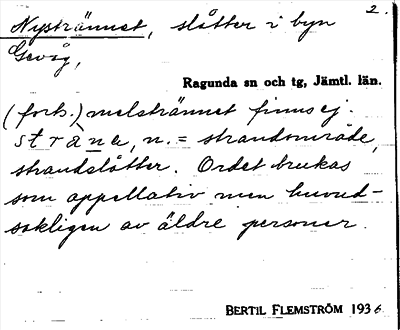 2.
Nystrännet, slåtter i byn
Gevåg,
Ragunda sn och tg, Jämtl. län.
(forts.) melstrännet finns ej.
sträne, n. = strandområde,
strandslåtter. Ordet brukas
som appellativ men huvud-
sakligen av äldre personer.
BERTIL FLEMSTRÖM 1936.